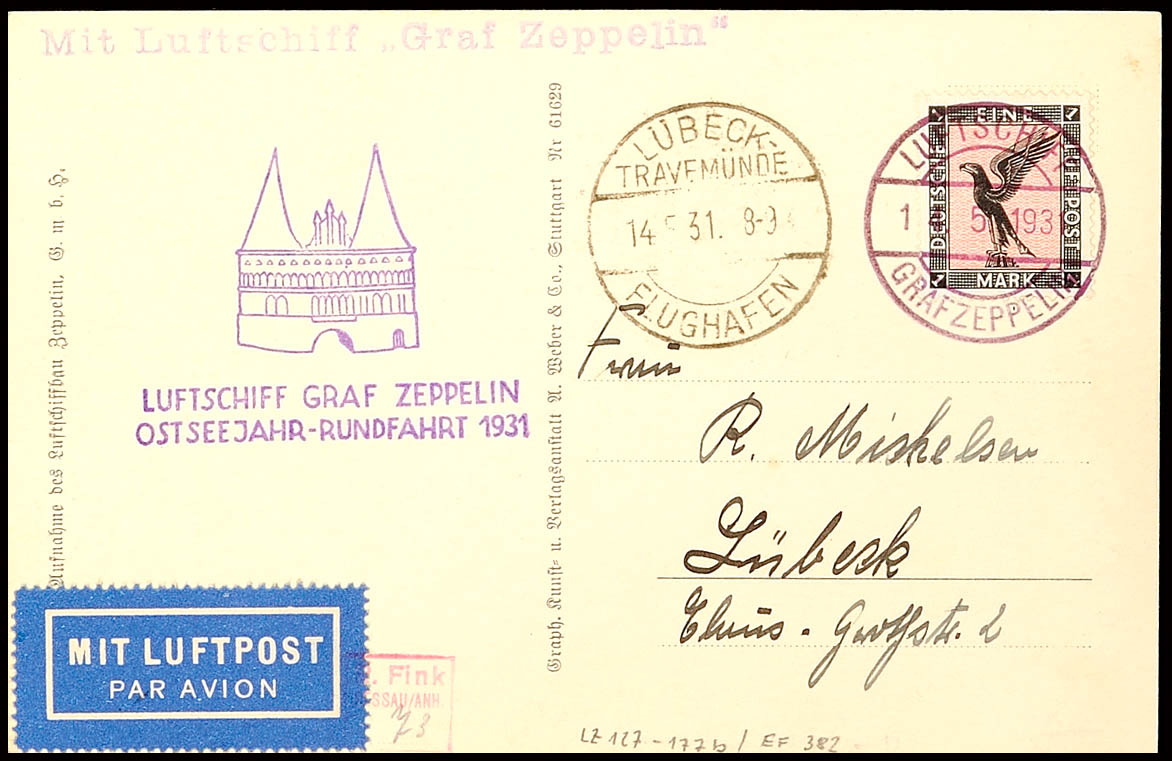 Mit Luftschiff „Graf Zeppelin“
Aufnahme des Luftschiffbau Zeppelin, G. m. b. H.
LUFTSCHIFF GRAF ZEPPELIN
OSTSEEJAHR-RUNDFAHRT 1931
MIT LUFTPOST
PAR AVION
Fink
DESSAU/ANH.
73
Graph. Kunst- u. Verlagsanstalt A. Weber & Co., Stuttgart Nr 61629
LÜBECK-
TRAVEMÜNDE
14 5 31. 8-9
FLUGHAFEN
EINE
DEUTSCHE
FLUGPOST
MARK
1 1 1 1
LUFTSCHIFF
1 5 1931
GRAF ZEPPELIN
Frau
R. Mishelsen
Lübeck
Claus-Grothstr. 2
LZ 127 - 177b / EF 382